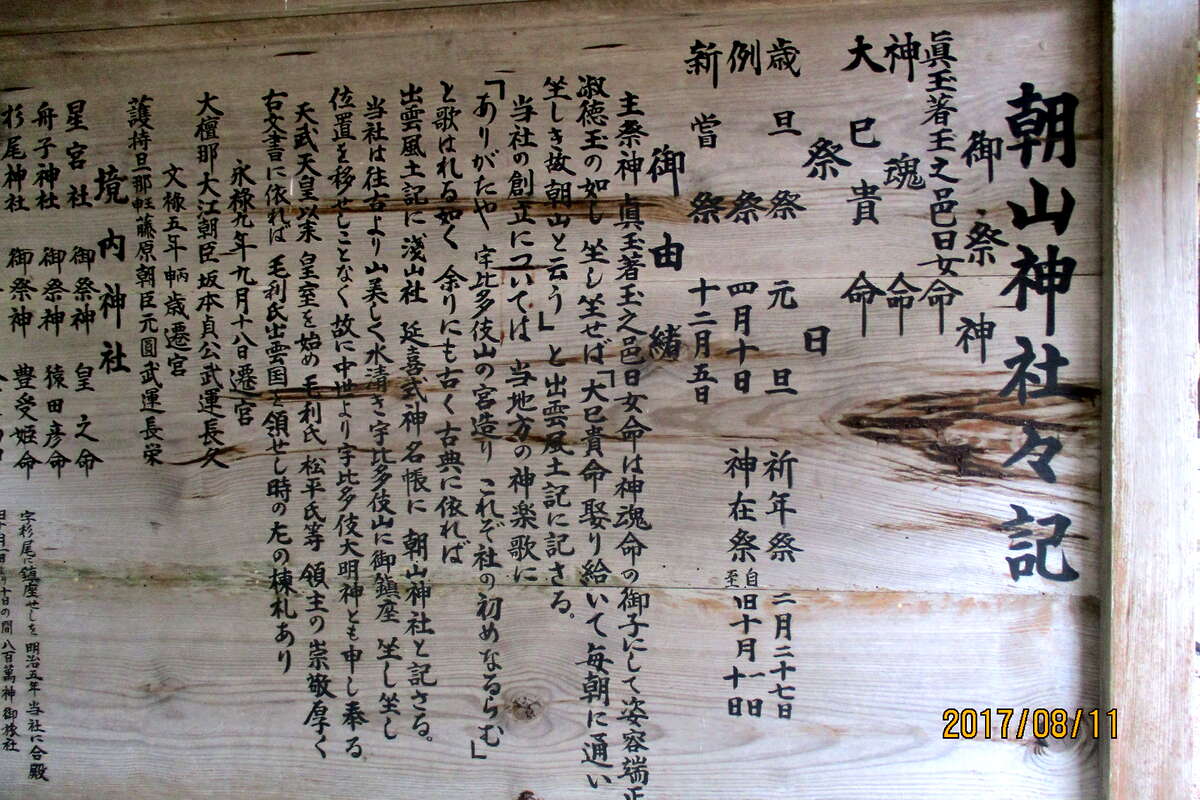 朝山神社々記
御祭神
眞玉著玉之邑日女命
神魂命
大巳貴命
祭日
歳旦祭 元旦 祈年祭 二月二十七日
例祭 四月十日 神在祭 自旧十月一日 至十日
新嘗祭 十二月五日
御由緒
主祭神 眞玉著玉之邑日女命は神魂命の御子にして姿容端正
淑徳玉の如し 坐し坐せば「大巳貴命娶り給いて毎朝に通い
坐しき故朝山と云う」と出雲風土記に記さる。
当社の創立については 当地方の神楽歌に
「ありがたや 宇比多伎山の宮造り これぞ社の初めなるらむ」
と歌はれる如く 余りにも古く古典に依れば
出雲風土記に浅山社 延喜式神名帳に 朝山神社と記さる。
当社は往古より山美しく水清き宇比多伎山に御鎮座 坐し坐し
位置を移せしことなく故に中世より宇比多伎大明神とも申し奉る
天武天皇以来 皇室を始め毛利氏 松平氏等 領主の崇敬厚く
右文書に依れば 毛利氏出雲国を領せし時の左の棟札あり
永禄九年九月十八日遷宮
大檀那大江朝臣坂本貞公武運長久
文禄五年丙申歳遷宮
護持旦那 藤原朝臣元圓武運長栄
境内神社
星宮社 御祭神 皇之命
舟子神社 御祭神 猿田彦命
杉尾神社 御祭神 豊受姫命
字杉尾に鎮座せしを 明治五年 当社に合殿
十日の間 八百萬神御旅社
2017/08/11